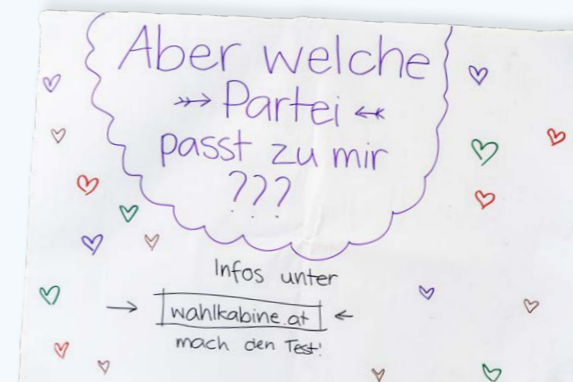 Aber welche
Partei
passt zu mir
???
Infos unter
wahlkabine.at
mach den Test!